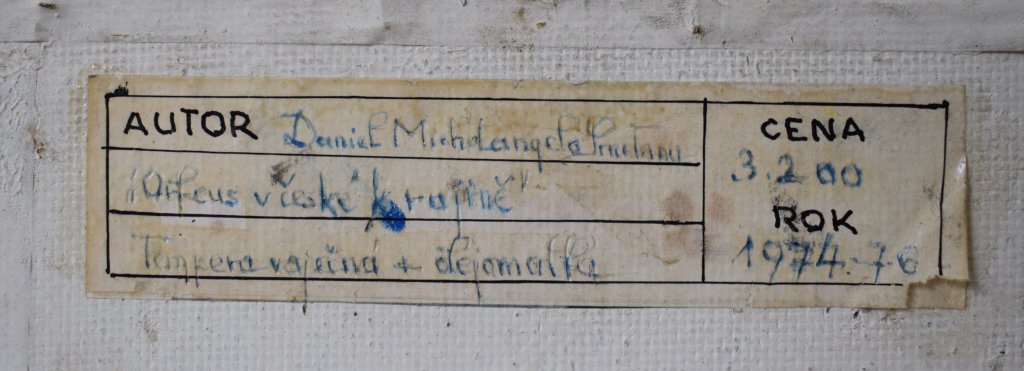 AUTOR Daniel Michelangelo Smetana
"Orfeus v české krajině"
Tempera vaječná + olejomalba
CENA
3.200
ROK
1974-76